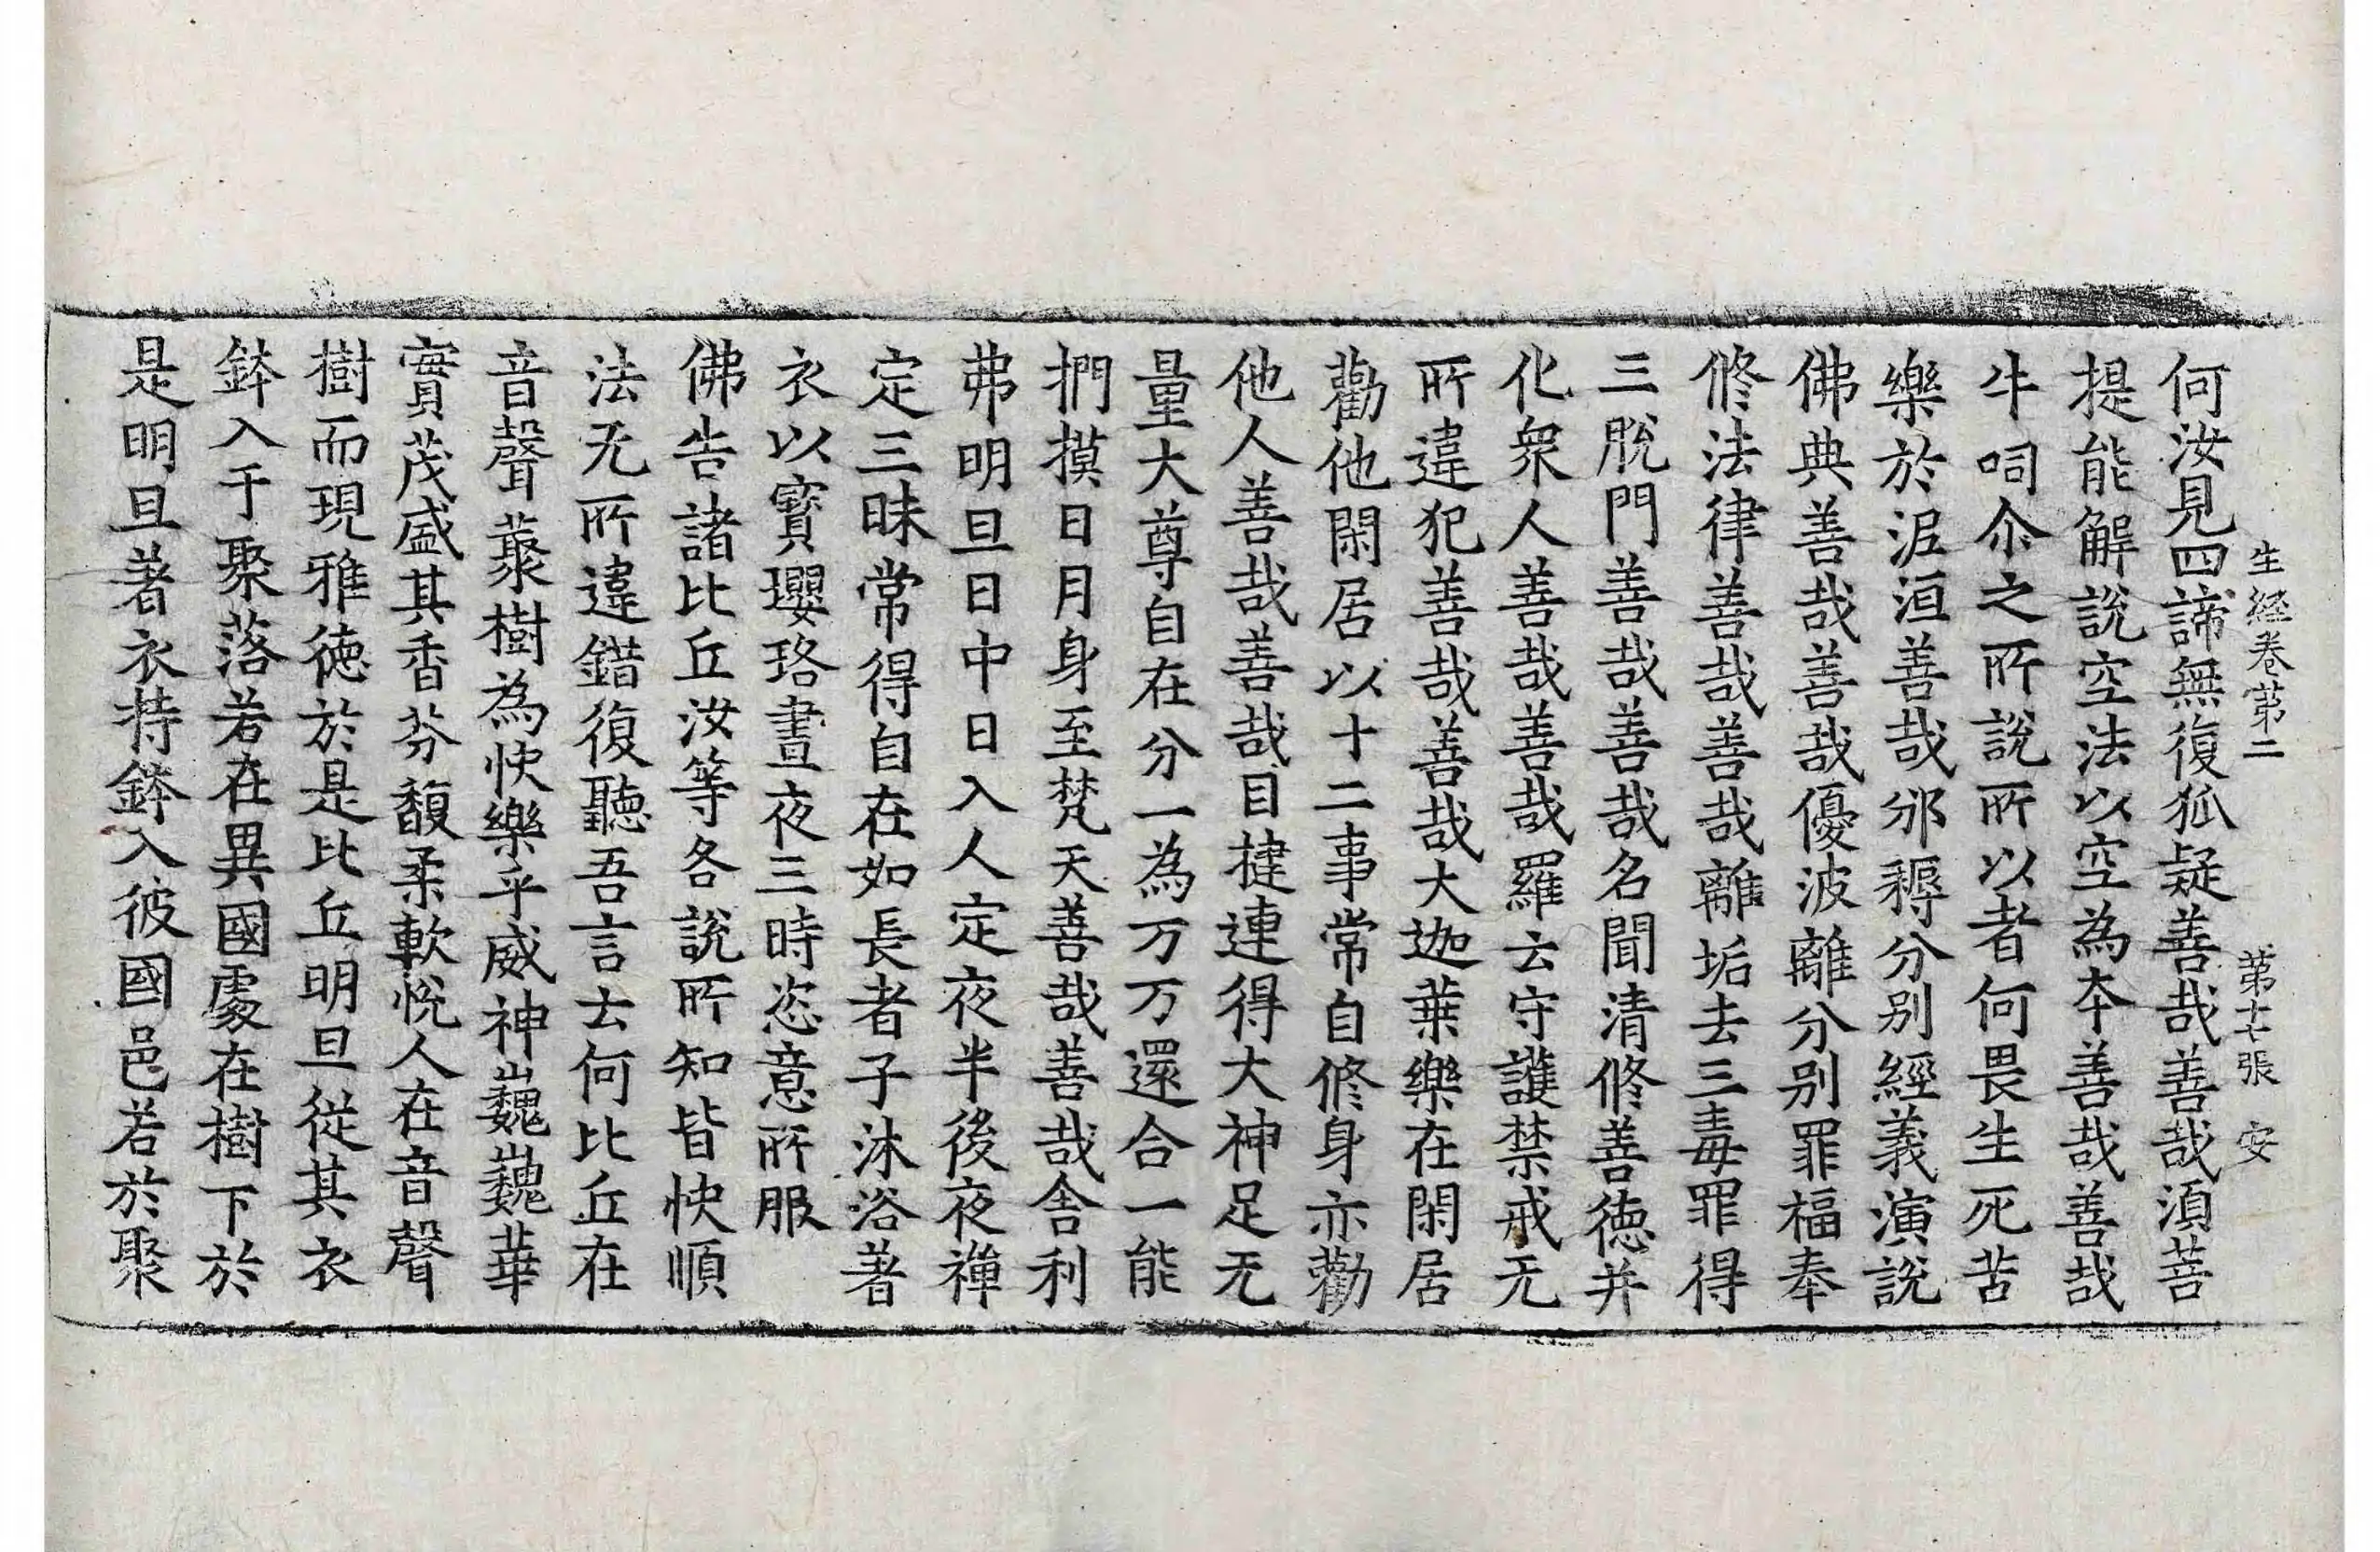 生經卷第二　第十七張　安
何汝見四諦無復狐疑善哉善哉湏菩
提能解說空法以空為夲善哉善哉
牛呞尒之所說所以者何畏生死苦
樂於泥洹善哉邠耨分别經義演說
佛典善哉善哉優波離分别罪福奉
修法律善哉善哉離垢去三毒罪得
三脫門善哉善哉名聞清修善德并
化衆人善哉善哉羅云守護禁戒无
所違犯善哉善哉大迦葉樂在閑居
勸他閑居以十二事常自修身亦勸
他人善哉善哉目揵連得大神足无
量大尊自在分一為万万還合一能
捫摸日月身至梵天善哉善哉舎利
弗明旦日中日入人定夜半後夜禪
定三昧常得自在如長者子沐浴著
衣以寳瓔珞晝夜三時恣意所服
佛告諸比丘汝等各說所知皆快順
法无所違錯復聽吾言云何比丘在
音聲叢樹為快樂乎威神巍巍華
實茂盛其香芬馥柔軟悅人在音聲
樹而現雅德於是比丘明旦從其衣
鉢入于聚落若在異國處在樹下於
是明旦著衣持鉢入彼國邑若於聚